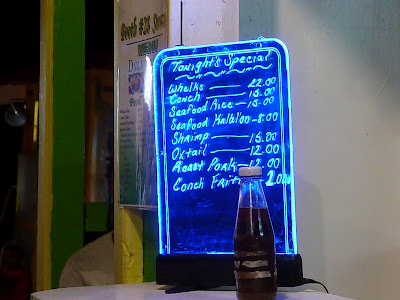 Booth #26
Tonight's Special
Whelks — 22.00
Conch — 15.00
Seafood Rice — 15.00
Seafood Kalaloo - 8.00
Shrimp — 15.00
Oxtail — 12.00
Roast Pork — 12.00
Conch Frit 1.00